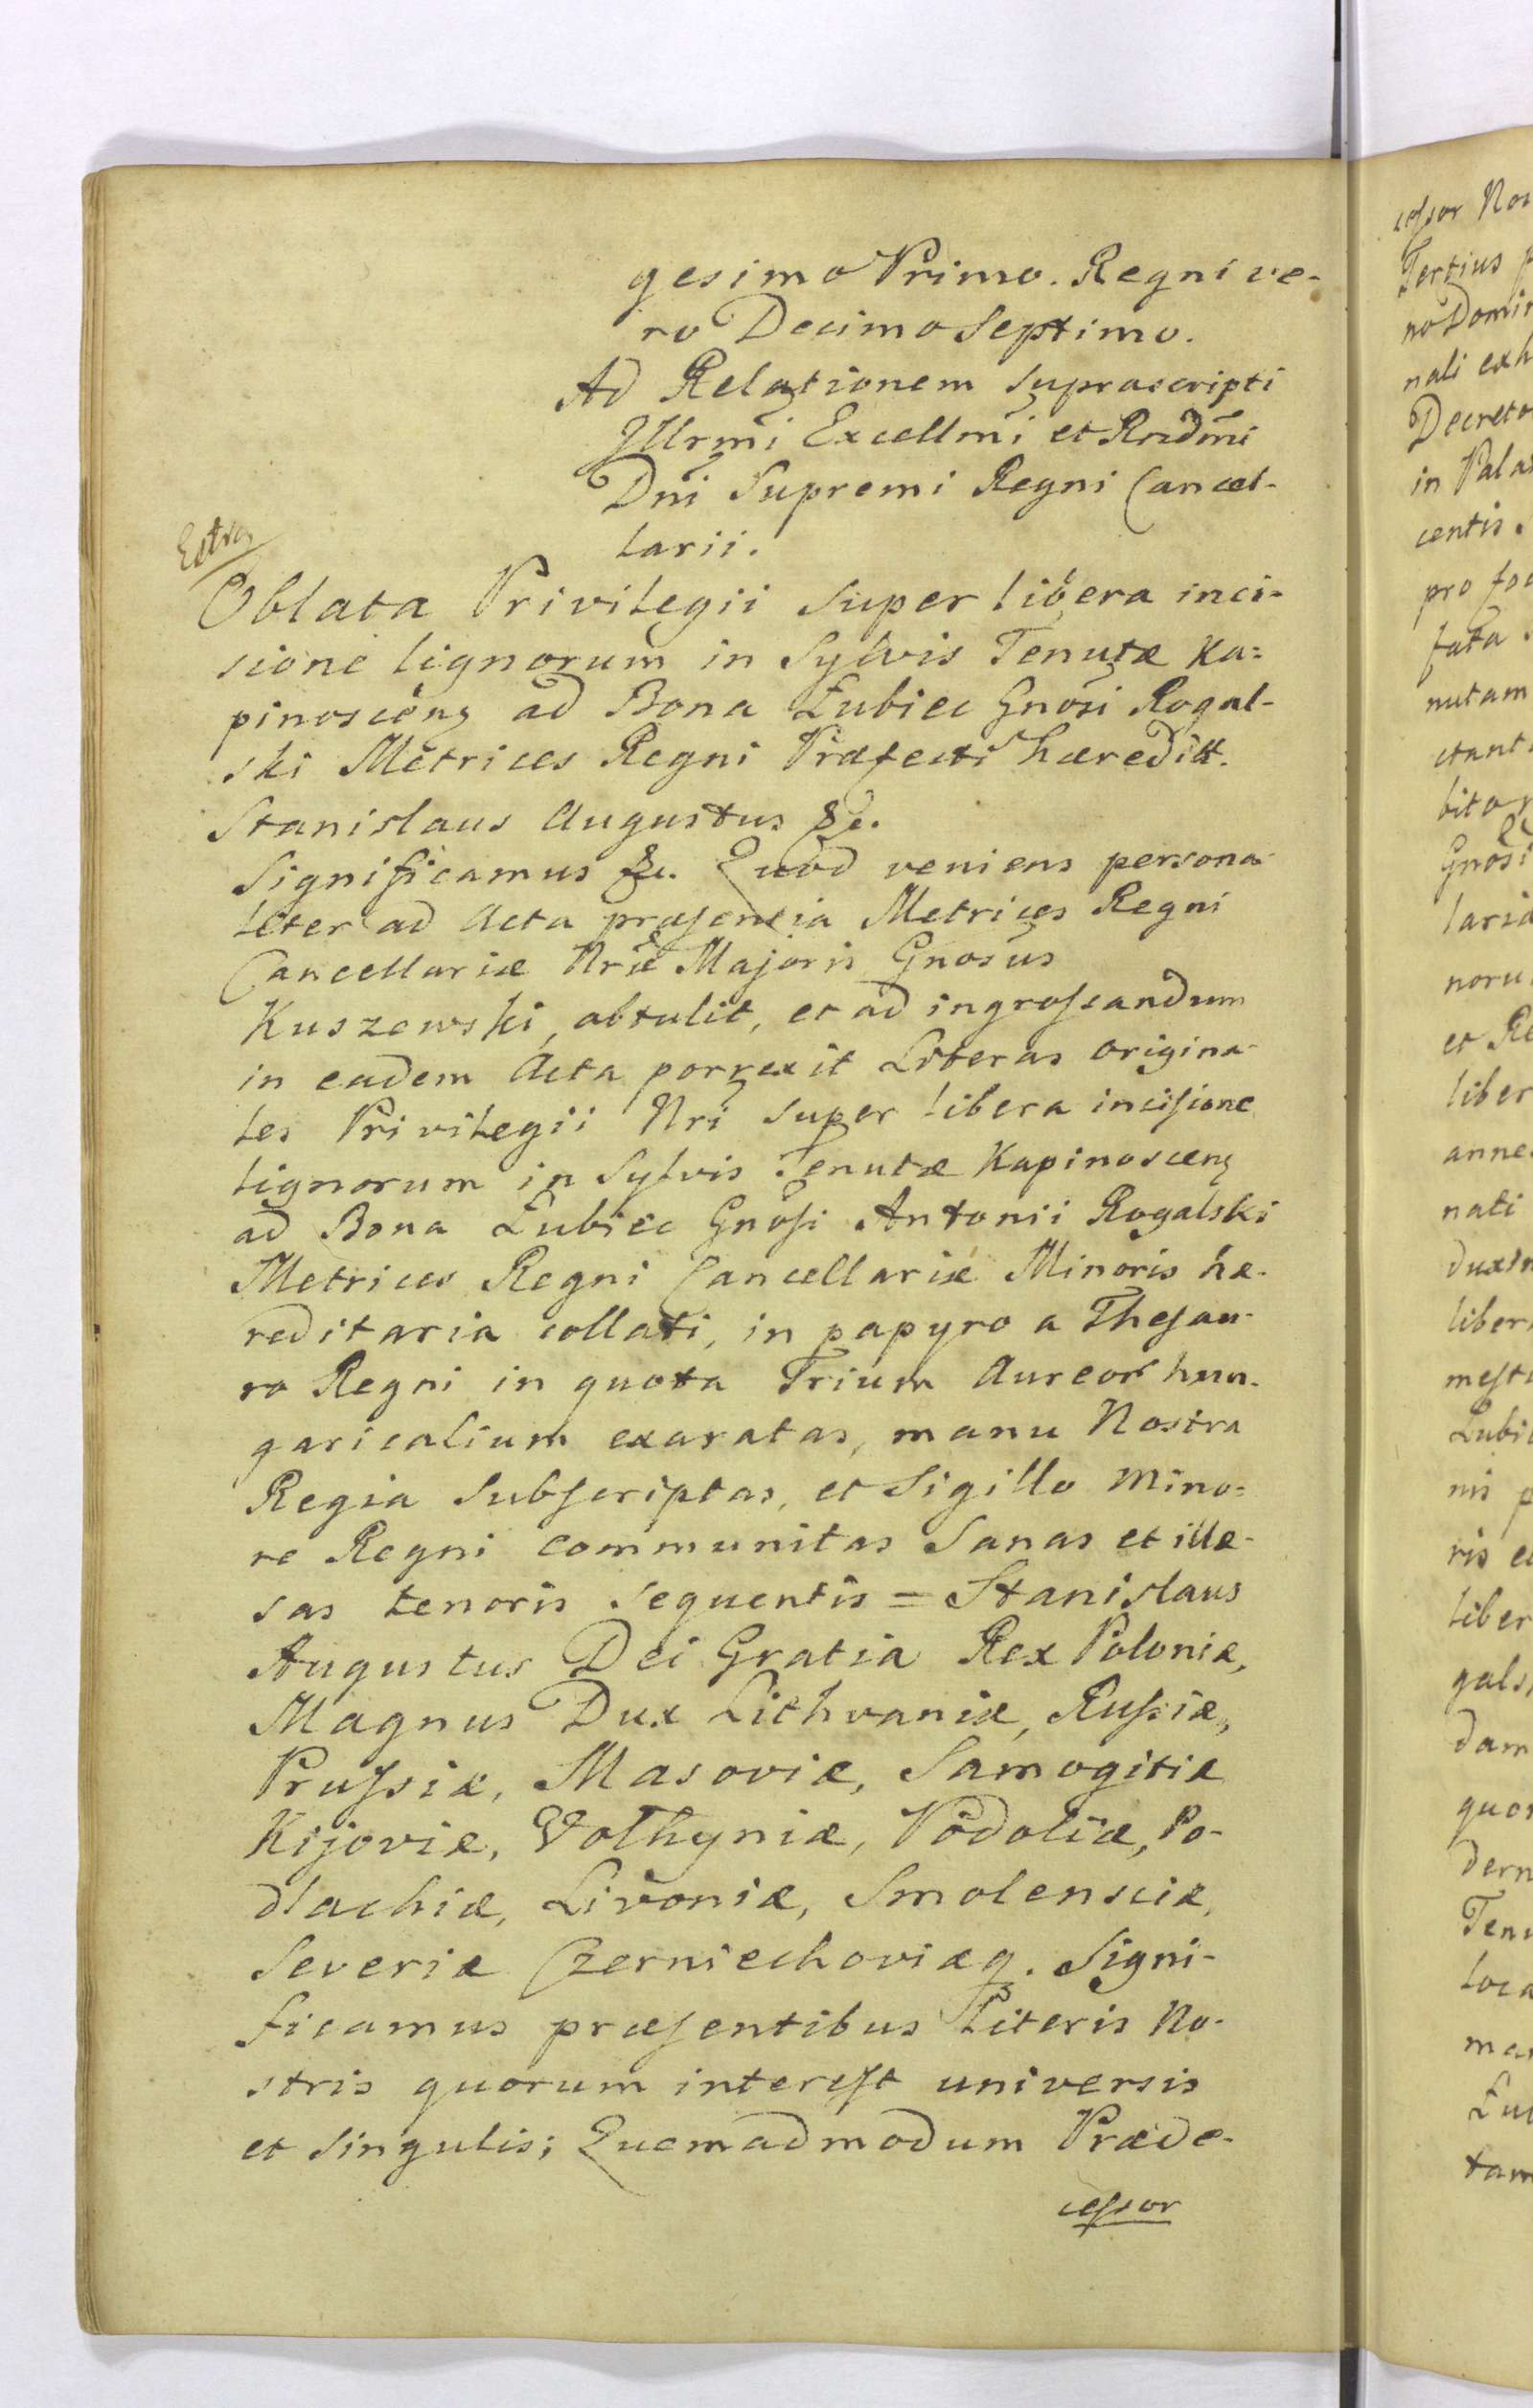 gesimo Primo. Regni ve-
ro Decimo Septimo.
Ad Relationem suprascripti
Illrmi Excellmi et Rndmi
Dni Supremi Regni Cancel-
larii.
Extra
Oblata Privilegii super libera inci-
sione lignorum in Sylvis Tenutæ Ka=
pinoscens ad Bona Łubiec Gnosi Rogal-
ski Metrices Regni Præfecti hæredit.
Stanislaus Augustus &c.
Significamus &c. Quod veniens persona-
liter ad Acta præsentia Metrices Regni
Cancellariæ Nræ Majoris Gnosus
Kuszewski, obtulit, et ad ingrossandum
in eadem Acta porrexit Literas origina-
les Privilegii Nri super libera incisione
lignorum in Sylvis Tenutæ Kapinoscens
ad Bona Łubiec Gnosi Antonii Rogalski
Metrices Regni Cancellariæ Minoris hæ-
reditaria collati, in papyro a Thesau-
ro Regni in quota Trium Aureor hun-
garicalium exaratas, manu Nostra
Regia Subscriptas, et Sigillo Mino=
re Regni communitas Sanas et illæ-
sas tenoris sequentis = Stanislaus
Augustus Dei Gratia Rex Poloniæ,
Magnus Dux Lithvaniæ, Russiæ,
Prussiæ, Masoviæ, Samogitiæ
Kijoviæ, Volhyniæ, Podoliæ, Po-
dlachiæ, Livoniæ, Smolensciæ,
Severiæ Czerniechoviæq. Signi-
ficamus præsentibus Literis No-
stris quorum interest universis
et singulis; Quemadmodum Præde-
cessor
cessor Nos
Tertius p
no Domin
nali exh
Decreto
in Pala
centis.
pro foc
fata
nutam
ctant
bitor
Gnosi
laria
noru
et Re
liber
anne
nati
duxim
liber
mest
Łubi
nis p
ris e
liber
gals
dam
quor
dern
Tenu
loca
ma
Łub
tam